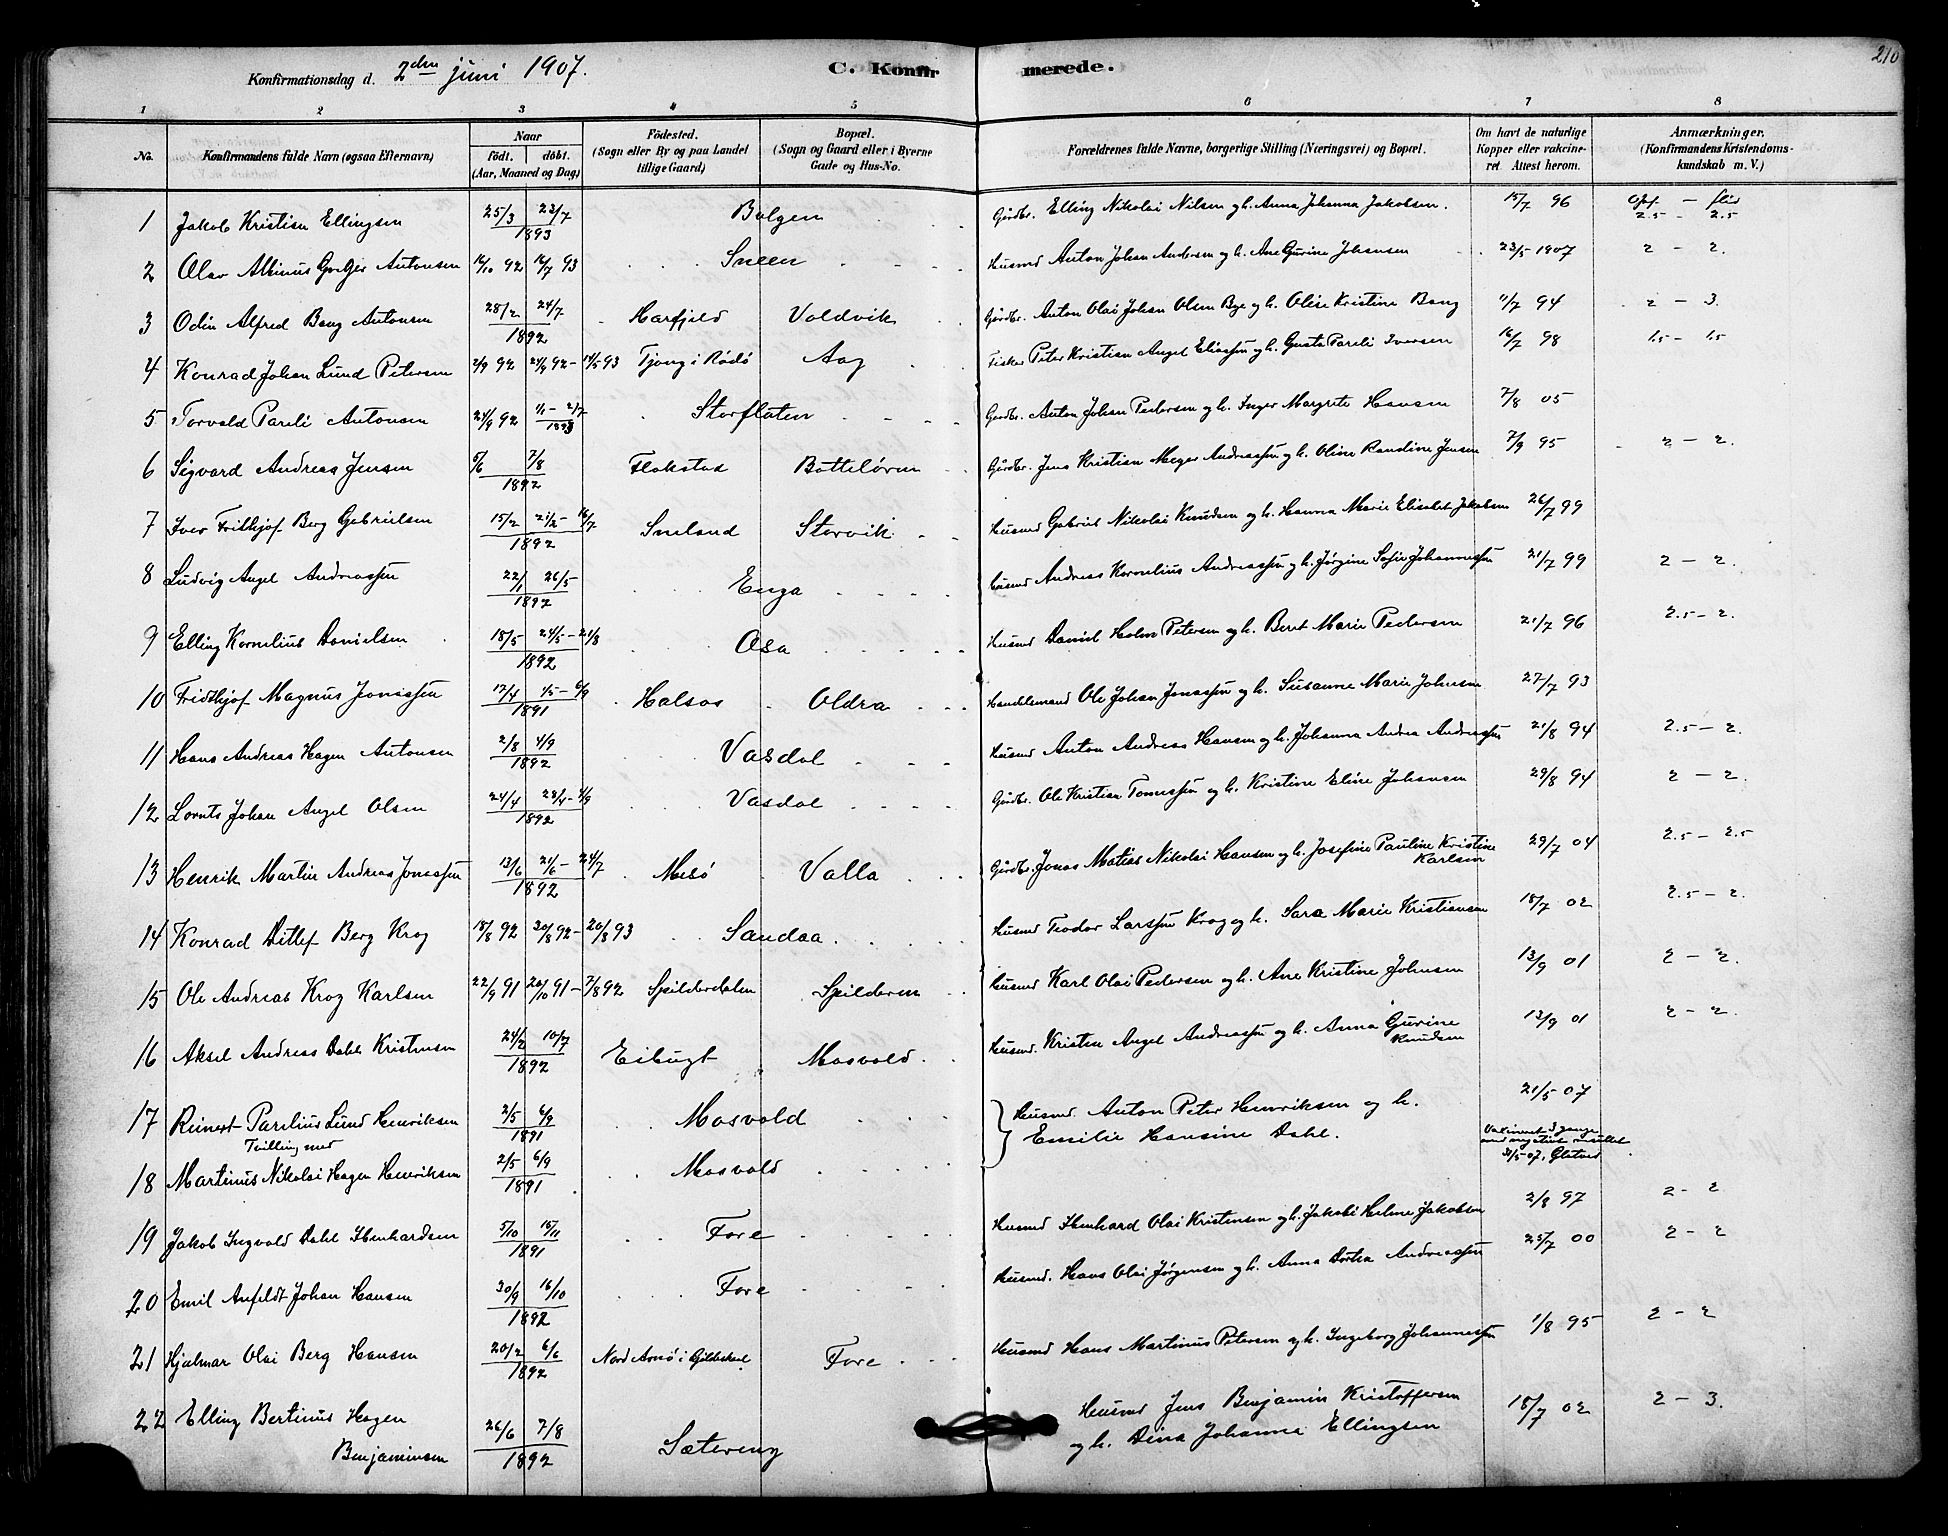 210
Konfirmationsdag d. 2den juni 1907. C. Konfirmerede.
1 2 3 4 5 6 7 8
No. Konfirmandens fulde Navn (ogsaa Efternavn) Naar födt. döbt. (Aar, Maaned og Dag) Födested. (Sogn eller By og paa Landet tillige Gaard) Bopæl. (Sogn og Gaard eller i Byerne Gade og Hus-No. Forældrenes fulde Navne, borgerlige Stilling (Næringsvei) og Bopæl. Om havt de naturlige Kopper eller vakcineret. Attest herom. Anmærkninger. (Konfirmandens Kristendomskundskab m. V.)
1 Jakob Kristian Ellingsen 25/3 23/7 1893 Bolgen Gårdbr. Elling Nikolai Nilsen og h. Anna Johanna Jakobsen. 15/7 96 2.5 — 2.5
2 Olav Albinus Antonsen 16/10 92 16/7 93 Sneen Husmd Anton Johan Andersen og h. Ane Gurine Johansen 23/5 1907 2 - 2.
3 Odin Alfred Bang Antonsen 28/2 24/7 1892 Harfjeld Voldvik Gårdbr. Anton Olai Johan Olsen Bye og h. Olise Kristine Bang 11/7 94 2 — 3.
4 Konrad Johan Lund Petersen 2/9 92 24/9 92 - 14/5 93 Tjong i Rödö Aag Fisker Peter Kristian Angel Eliassen og h. Gusta Pareli Iversen 16/7 98 1.5 - 1.5
5 Torvald Pareli Antonsen 24/9 92 1/1 - 2/7 1893 Storflaten Gårdbr. Anton Johan Pedersen og h. Inger Margrete Hansen 7/8 05
6 Sigvard Andreas Jensen 5/6 7/8 1892 Flakstad Botteløren Gårdbr. Jens Kristian Meyer Andreassen og h. Oline Randine Jensen 7/9 95 2 — 2.
7 Iver Frithjof Berg Gabrielsen 15/2 21/2 - 16/7 1892 Smeland Storvik Husmd Gabriel Nikolai Knudsen og h. Hanna Marie Elisabet Jakobsen 26/7 99
8 Ludvig Angel Andreassen 22/1 26/5 1892 Enga Husmd Andreas Kornelius Andreassen og h. Jørgine Sofie Johannessen 21/7 99 2 — 2.
9 Elling Kornelius Danielsen 18/5 24/5 - 21/8 1892 Osa Husmd Daniel Holm Petersen og h. Beret Marie Pedersen 21/7 96 2.5 - 2.
10 Fridthjof Magnus Jonassen 17/4 1/5 - 6/9 1891 Halsos Oldra Handelsmand Ole Johan Jonassen og h. Susanne Marie Johnsen 27/7 93
11 Hans Andreas Hagen Antonsen 2/8 4/9 1892 Vasdal Husmd Anton Andreas Hansen og h. Johanna Andrea Andreassen 21/8 94 2.5 - 2.
12 Lornts Johan Angel Olsen 24/4 28/4 - 4/9 1892 Vasdal Gårdbr. Ole Kristian Tomassen og h. Kristine Eline Johansen 29/8 94 2 — 2.
13 Henrik Martin Andreas Jonassen 13/6 21/6 - 24/7 1892 Mesö Valla Gårdbr. Jonas Matias Nikolai Hansen og h. Josefine Pauline Kristine Karlsen 29/7 04 2.5 - 2.5
14 Konrad Ditlef Berg Krog 18/8 92 30/8 92 - 20/8 93 Sandaa Husmd Teodor Larssen Krog og h. Sara Marie Kristiansen 18/7 02 2.5 - 2.
15 Ole Andreas Krog Karlsen 22/9 91 20/10 91 - 7/8 92 Spilderdalen Spilderen Husmd Karl Olai Pedersen og h. Ane Kristine Johnsen 13/9 01 2 - 2.
16 Aksel Andreas Dahl Kristensen 24/2 10/7 1892 Eibugt Mosvold Husmd. Kristen Angel Andreassen og h. Anna Gurine Knudsen 13/9 01 2 - 2.
17 Reinert Parelius Lund Henriksen 2/5 6/9 1891 Mosvold Husmd. Anton Peter Henriksen og h. Emilie Hansine Dahl. 21/5 07
Tvilling med
Vakcineret 3 gange med negativt resultat 31/5-07, Glatved
18 Martinus Nikolai Hagen Henriksen 2/5 6/9 1891 Mosvold
19 Jakob Ingvald Dahl Ebenhardsen 5/10 15/11 1891 Fore Husmd Ebenhard Olai Kristensen og h. Jakobi Heline Jakobsen 2/8 97 2 - 2
20 Emil Anfeldt Johan Hansen 30/9 16/10 1892 Fore Husmd. Hans Olai Jørgensen og h. Anna Dortea Andreassen 25/7 00 2 - 2
21 Hjalmar Olai Berg Hansen 20/2 6/6 1892 Nord Arnö i Gildeskaal Fore Husmd Hans Martinus Petersen og h. Ingeborg Johannessen 1/8 95 2 - 2
22 Elling Bertinus Hagen Benjaminsen 26/6 7/8 1892 Sætereng Husmd Jens Benjamin Kristoffersen og h. Dina Johanna Ellingsen 18/7 02 2 — 3.